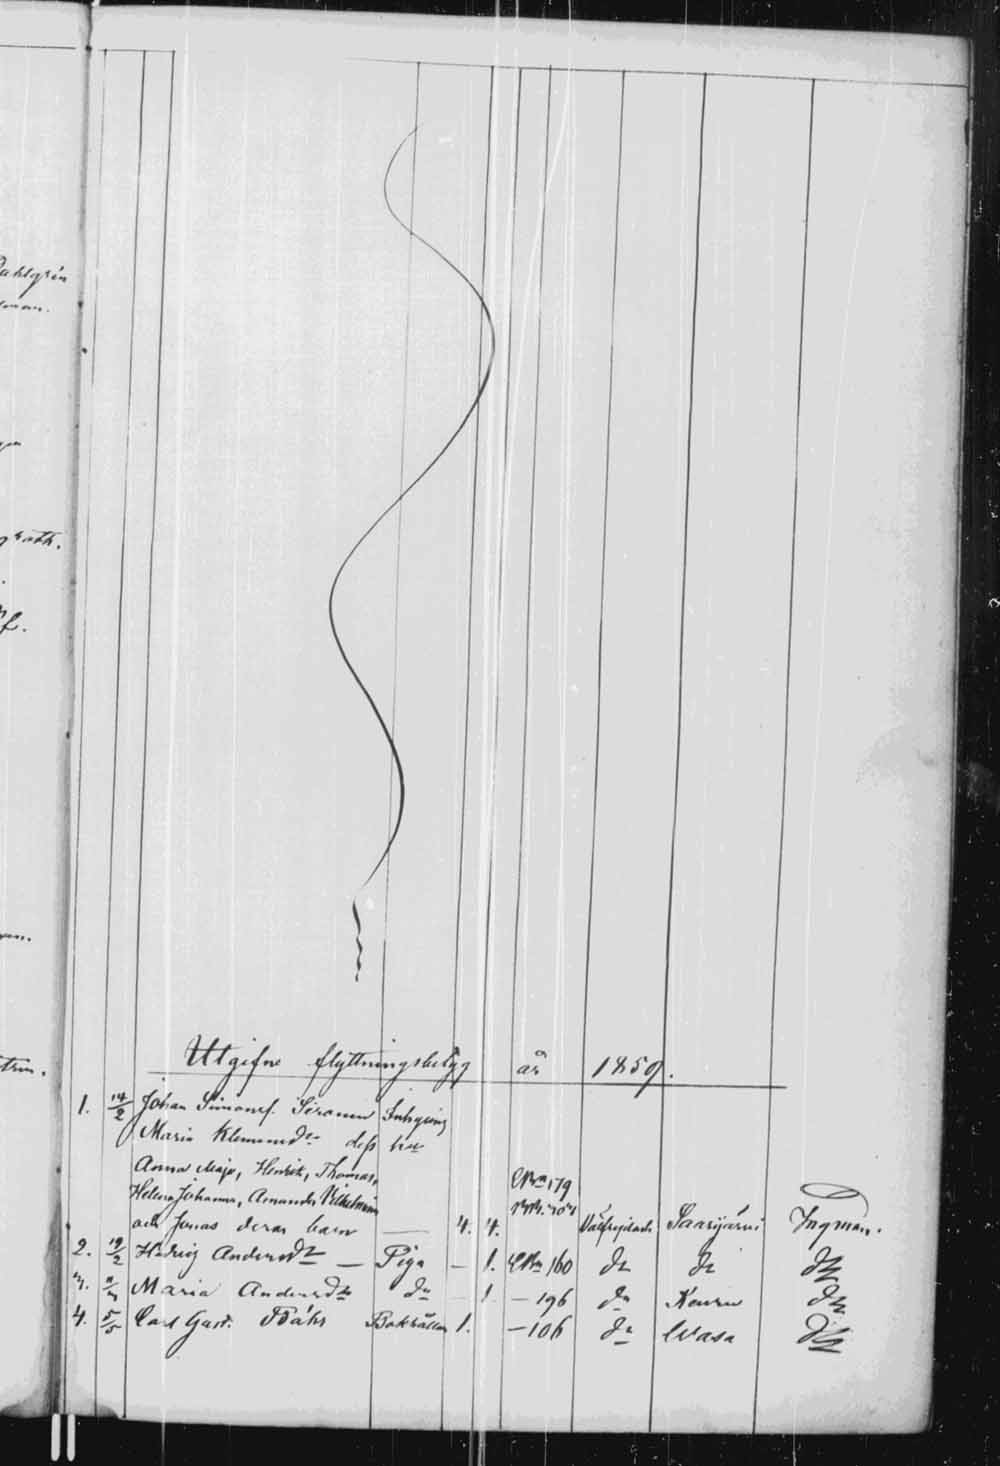 Dahlgrén
Utgifne flyttningsbetyg år 1859.
1. 14/2 Johan Simonsf. Siranen Inhysing
Maria Klemensdr dess hu
Anna Maja, Henrik, Thomas,
Helena Johanna, Amanda Wilhelmina
och Jonas deras barn — 4. 4. 179 Välfrejdad Saarijärvi Ingman.
2. 19/2 Hedvig Andersdr — Piga — 1. 160 do do do
3. Maria Andersdr do — 1. — 196 do Keuru do
4. 5/5 Carl Gust. Bokhållar 1. — 106 do Wasa do